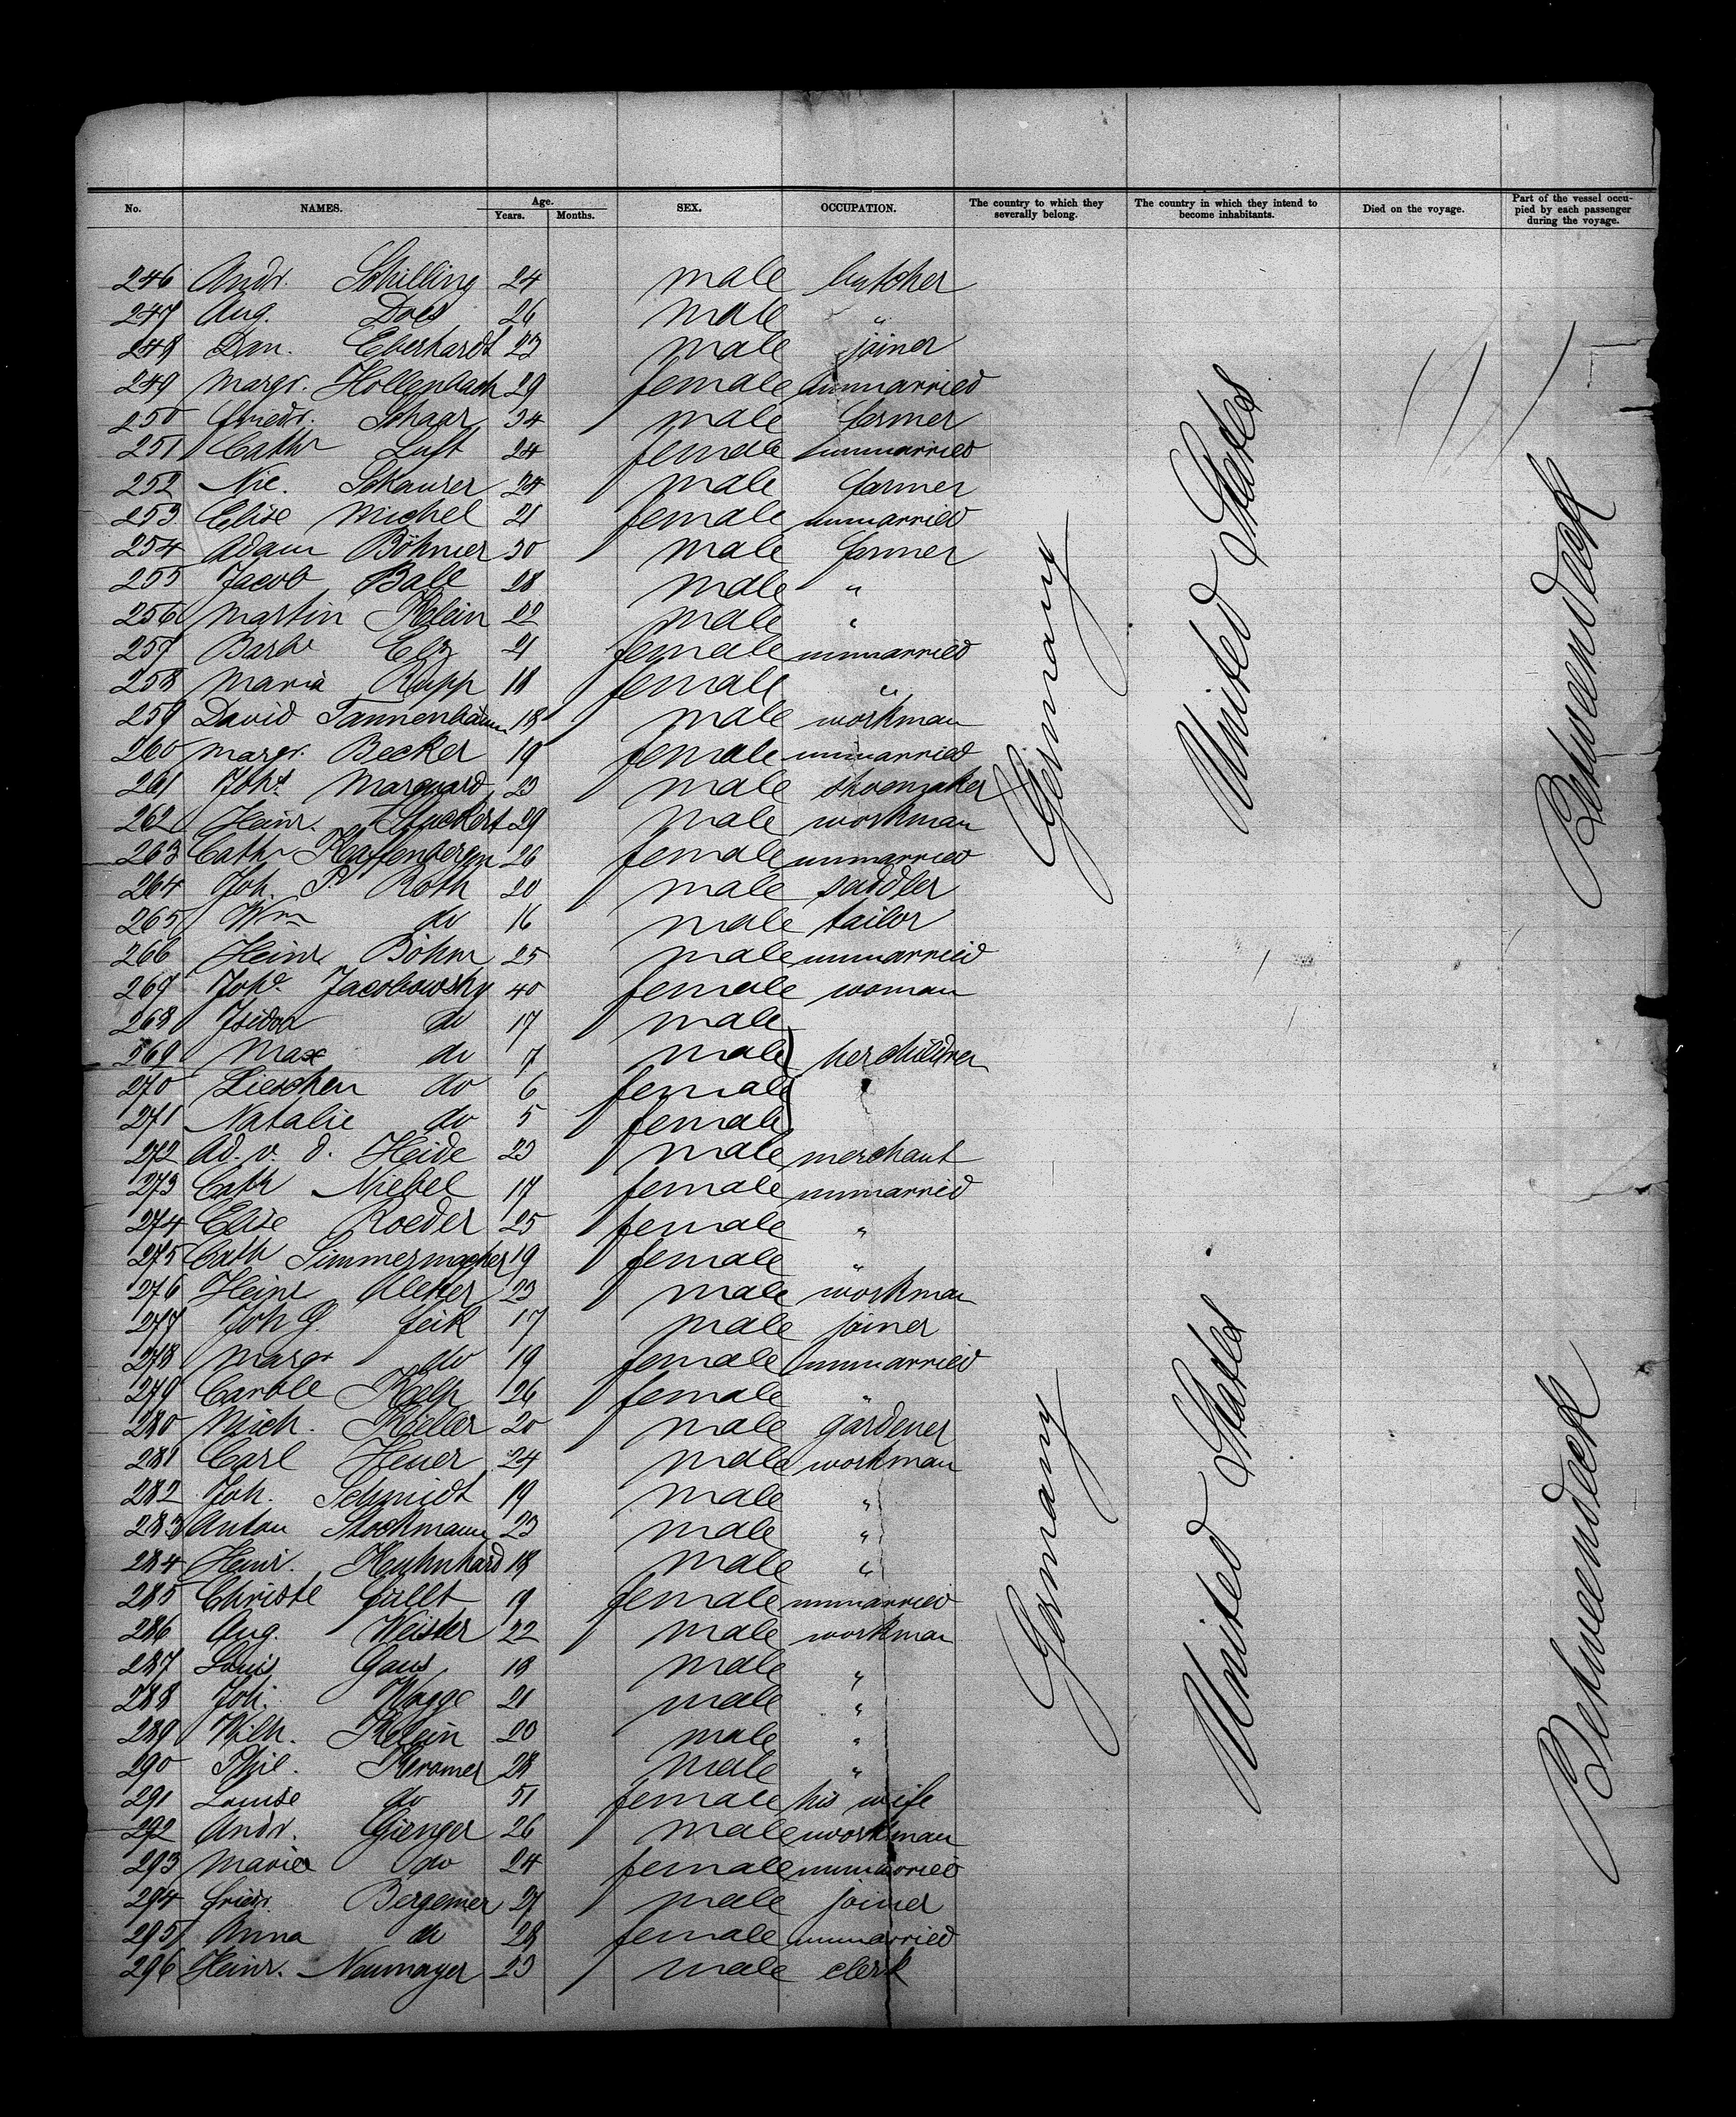 No. NAMES. Age. Years. Months. SEX. OCCUPATION. The country to which they severally belong. The country in which they intend to become inhabitants. Died on the voyage. Part of the vessel occupied by each passenger during the voyage.
246 Andr. Schilling 24 male butcher
247 Aug. Does 26 male "
248 Dan. Eberhardt 23 male joiner
249 Margr. Hollenbach 29 female unmarried
250 Friedr. Schaar 34 male farmer
251 Cath Luft 24 female unmarried
252 Nic. Schaurer 24 male farmer
253 Elise Michel 21 female unmarried
254 Adam Böhmer 30 male farmer
255 Jacob Ball 28 male "
256 Martin Klein 22 male "
257 Barb. 21 female unmarried
258 Maria Rupp 18 female "
259 David Tannenbaum 18 male workman
260 Margr. Becker 19 female unmarried
261 Johs. Marquard 23 male shoemaker
262 Heinr. Stuckert 29 male workman
263 Cath Kaffenberger 26 female unmarried
264 Joh. P. Roth 20 male saddler
265 Wm do 16 male tailor
266 Heinr Böhm 25 male unmarried
267 Joh. Jacobowsky 40 female woman
268 Isidor do 17 male
269 Max do 7 male her children
270 Lieschen do 6 female
271 Natalie do 5 female
272 Ad. v. d. Heide 23 male merchant
273 Cath Niebel 17 female unmarrid
274 Elise Roeder 25 female "
275 Cath Simmermacher 19 female "
276 Heinr 23 male workman
277 Joh G. Feik 17 male joiner
278 Margr do 19 female unmarried
279 Carole 26 female "
280 Mich. Keller 20 male gardener
281 Carl Heuer 24 male workman
282 Joh. Schmidt 19 male "
283 Anton Stockmann 23 male "
284 Heinr. Kuhnhard 18 male "
285 Christe 19 female unmarried
286 Aug. Weister 22 male workman
287 Louis Gaus 18 male "
288 Joh. Wagge 21 male "
289 Wilh. Klein 23 male "
290 Phil. Kramer 28 male "
291 Louise do 51 female his wife
292 Andr. Gienger 26 male workman
293 Marie do 24 female unmarried
294 Friedr. Bergemer 27 male joiner
295 Anna do 28 female unmarried
296 Heinr. Neumayer 23 male clerk
Germany
United States
Betweendeck
Germany
United States
Betweendeck